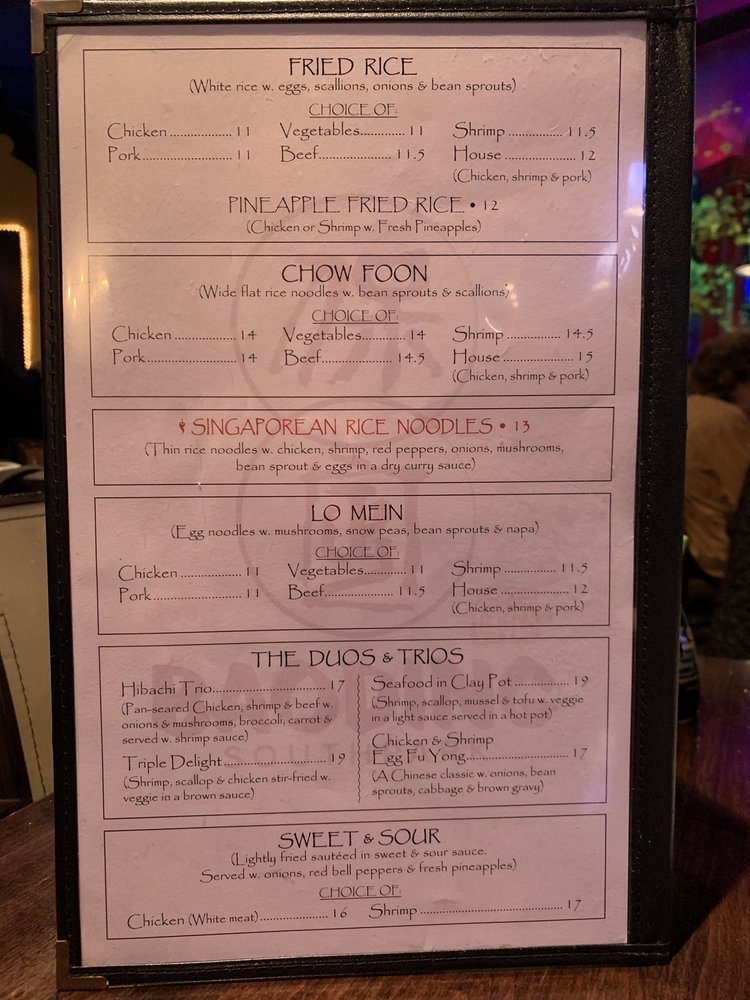 FRIED RICE
(White rice w. eggs, scallions, onions & bean sprouts)
CHOICE OF:
Chicken .................... 11 Vegetables............. 11 Shrimp ................ 11.5
Pork............................ 11 Beef....................... 11.5 House ..................... 12
(Chicken, shrimp & pork)
PINEAPPLE FRIED RICE • 12
(Chicken or Shrimp w. Fresh Pineapples)
CHOW FOON
(Wide flat rice noodles w. bean sprouts & scallions)
CHOICE OF:
Chicken .................... 14 Vegetables............. 14 Shrimp ................ 14.5
Pork............................ 14 Beef....................... 14.5 House ..................... 15
(Chicken, shrimp & pork)
SINGAPOREAN RICE NOODLES • 13
(Thin rice noodles w. chicken, shrimp, red peppers, onions, mushrooms,
bean sprout & eggs in a dry curry sauce)
LO MEIN
(Egg noodles w. mushrooms, snow peas, bean sprouts & napa)
CHOICE OF:
Chicken .................... 11 Vegetables............. 11 Shrimp ................ 11.5
Pork............................ 11 Beef....................... 11.5 House ..................... 12
(Chicken, shrimp & pork)
THE DUOS & TRIOS
Hibachi Trio................................ 17
(Pan-seared Chicken, shrimp & beef w.
onions & mushrooms, broccoli, carrot &
served w. shrimp sauce)
Triple Delight............................. 19
(Shrimp, scallop & chicken stir-fried w.
veggie in a brown sauce)
Seafood in Clay Pot .................. 19
(Shrimp, scallop, mussel & tofu w. veggie
in a light sauce served in a hot pot)
Chicken & Shrimp
Egg Fu Yong............................. 17
(A Chinese classic w. onions, bean
sprouts, cabbage & brown gravy)
SWEET & SOUR
(Lightly fried sautéed in sweet & sour sauce.
Served w. onions, red bell peppers & fresh pineapples)
CHOICE OF:
Chicken (White meat).................... 16 Shrimp .......................................... 17